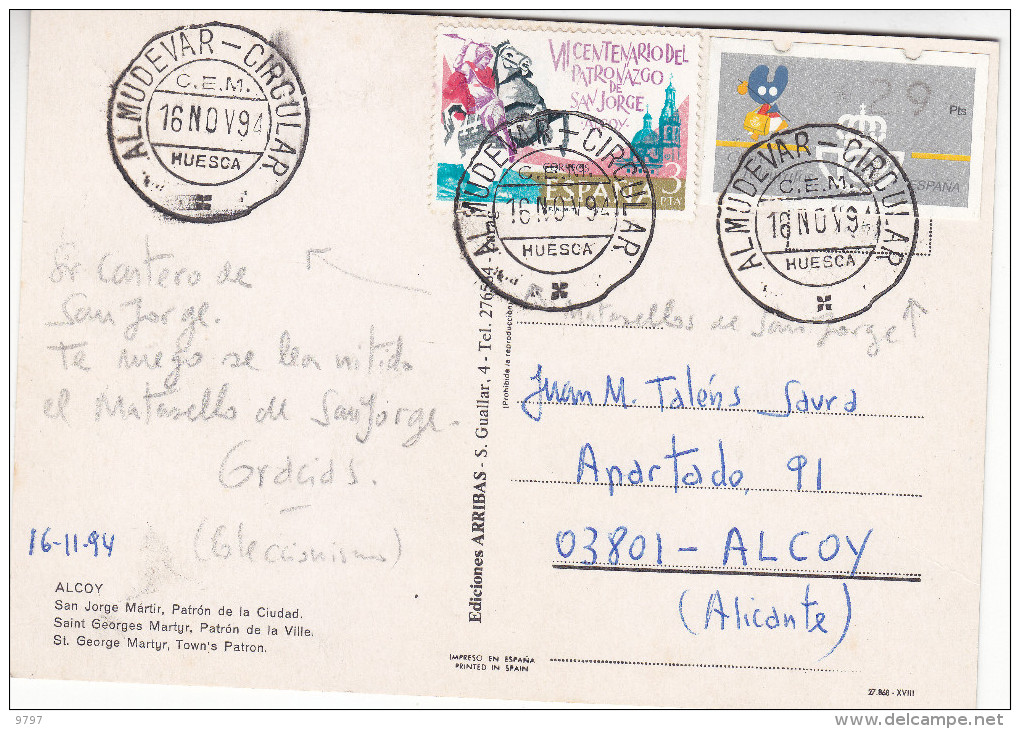 ALMUDEVAR - CIRCULAR
C.E.M.
16 NOV 94
HUESCA
VII CENTENARIO DEL
PATRONAZGO
DE
SAN JORGE
ALCOY.
CORREOS
ESPAÑA
3
PTA
29 Pts
ESPAÑA
ALMUDEVAR - CIRCULAR
C.E.M.
16 NOV 94
HUESCA
ALMUDEVAR - CIRCULAR
C.E.M.
16 NOV 94
HUESCA
Sr Cartero de
San Jorge.
Te ruego se lea nitido
el Matasello de San Jorge.
Gracias.
(Coleccionismo)
16-11-94
ALCOY
San Jorge Mártir, Patrón de la Ciudad.
Saint Georges Martyr, Patrón de la Ville.
St. George Martyr, Town's Patron.
Ediciones ARRIBAS - S. Guallar, 4 - Tel. 276514
(Prohibida la reproducción
Matasellos de San Jorge
Juan M. Taléns Saura
Apartado, 91
03801 - ALCOY
(Alicante)
IMPRESO EN ESPAÑA
PRINTED IN SPAIN
27.868 - XVIII
9797
delcampe.net